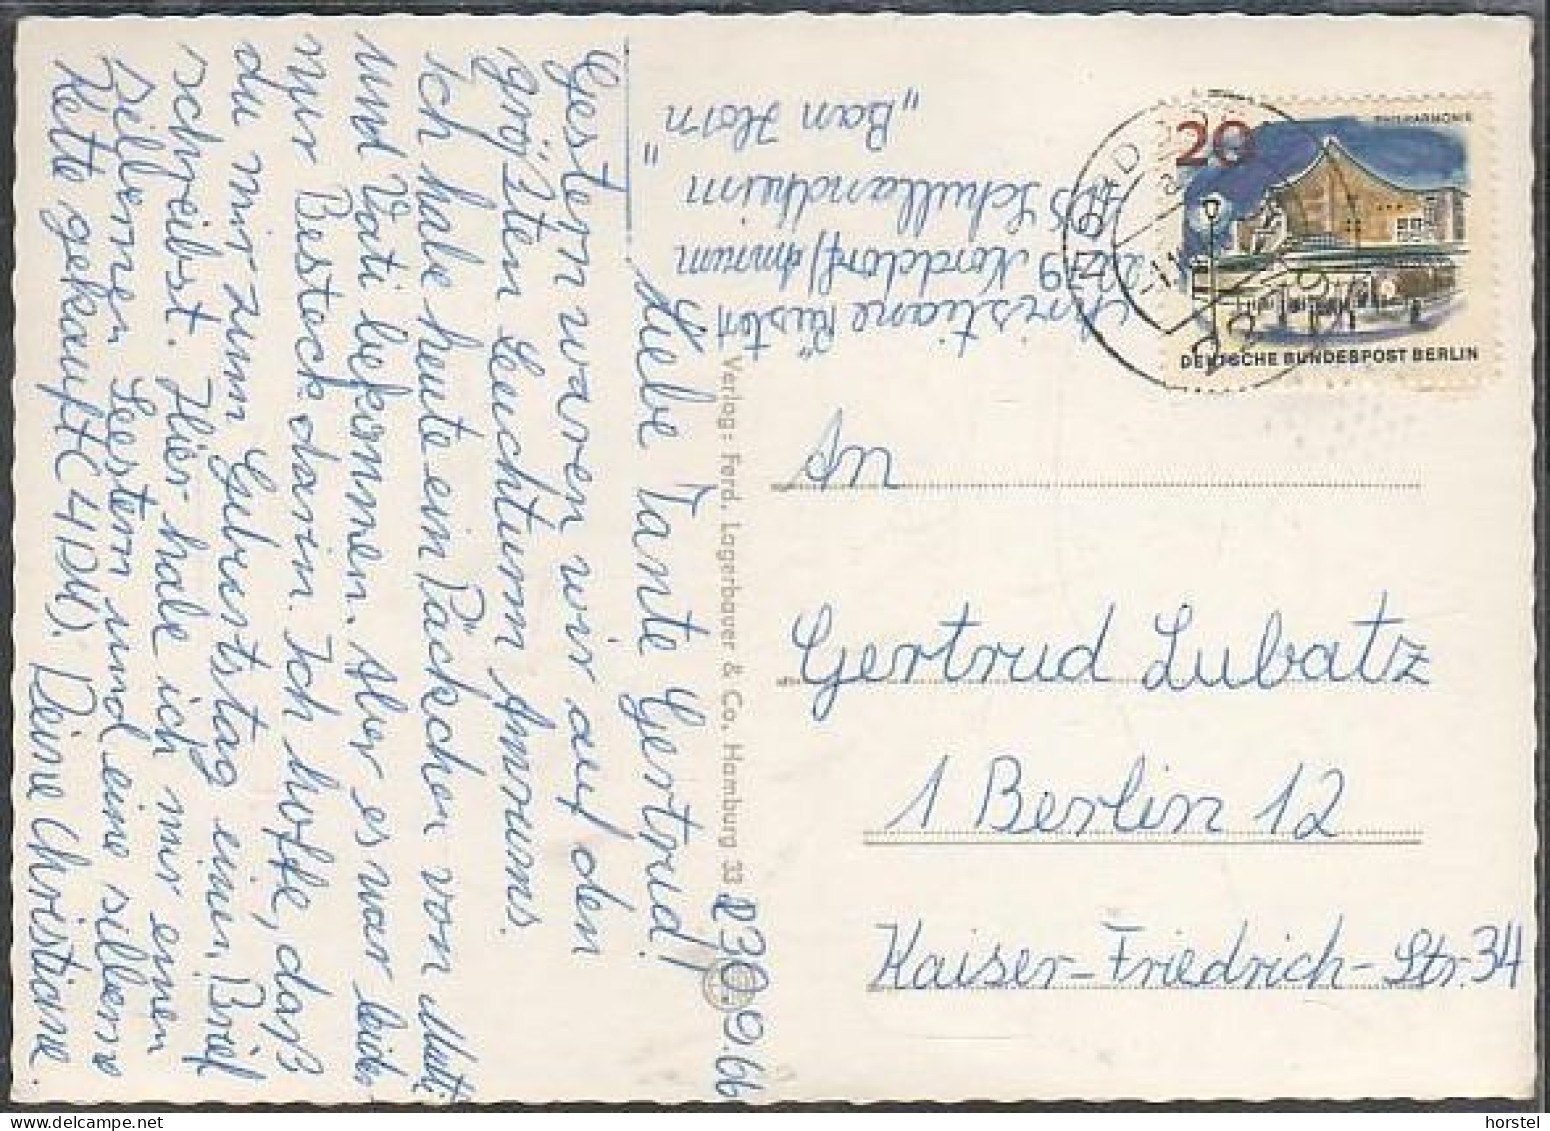 Christiane Küster
2279 Norddorf/Amrum
Schullandheim
„Ban Horn"
30.9.66
Liebe Tante Gertrud!
Gestern waren wir auf den
größten Leuchturm Amrums.
Ich habe heute ein Päckchen von Mutti
und Vati bekommen. Aber es war
nur Besteck darin. Ich hoffe, daß
du mir zum Geburtstag einen Brief
schreibst. Hier habe ich mir einen
silbernen Seestern und eine silberne
Kette gekauft (4DM). Deine Christiane.
Verlag: Ferd. Lagerbauer & Co., Hamburg 33
20
PHILHARMONIE
DEUTSCHE BUNDESPOST BERLIN
An
Gertrud Lubatz
1 Berlin 12
Kaiser-Friedrich-Str. 34